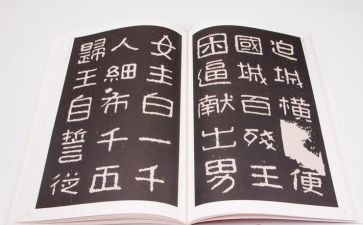 迫城橫便
國城百残王
困逼献出男
女生白一千
人細布千匹
歸王自誓從